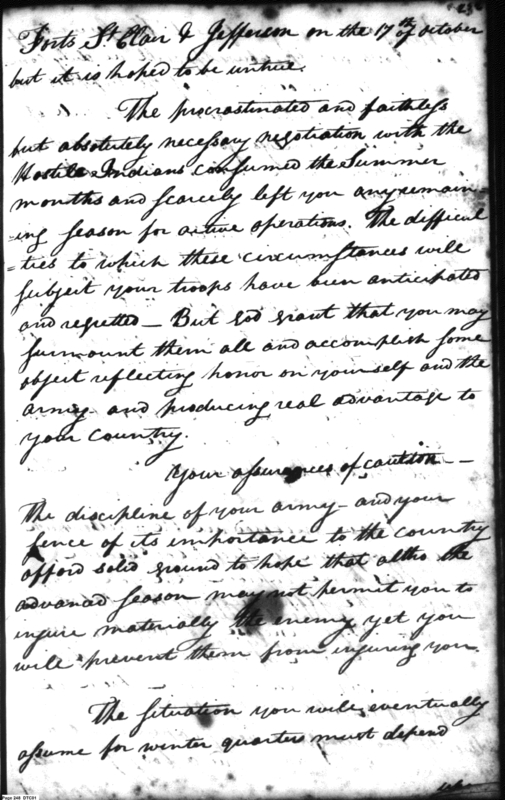 23
Forts St Clair & Jefferson on the 17th of October
but it is hoped to be untrue.
The procrastinated and faithless
but absolutely necessary negotiation with the
Hostile Indians consumed the Summer
months and scarcely left you any remain=
=ing season for active operations. The difficul
=ties to which these circumstances will
subject your troops have been anticipated
and regretted — But god grant that you may
surmount them all and accomplish some
object reflecting honor on yourself and the
army and producing real advantage to
your Country.
Your assurances of caution —
The discipline of your army — and your
sence of its importance to the Country
afford solid ground to hope that altho the
advanced season may not permit you to
injure materially the enemy yet you
will prevent them from injuring you.
The situation you will eventually
assume for winter quarters must depend
Page 248 DTC01